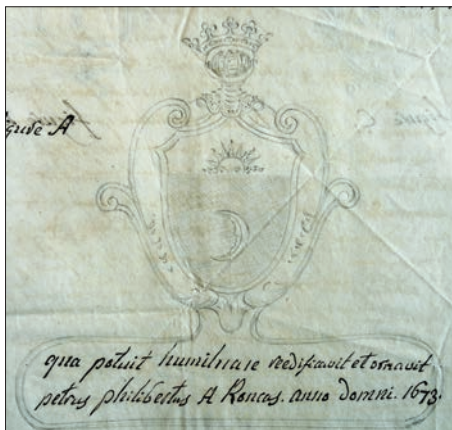 igure A
qua potuit humilitate reedificavit et ornavit
petrus philibertus A Roncas. anno domni. 1673.